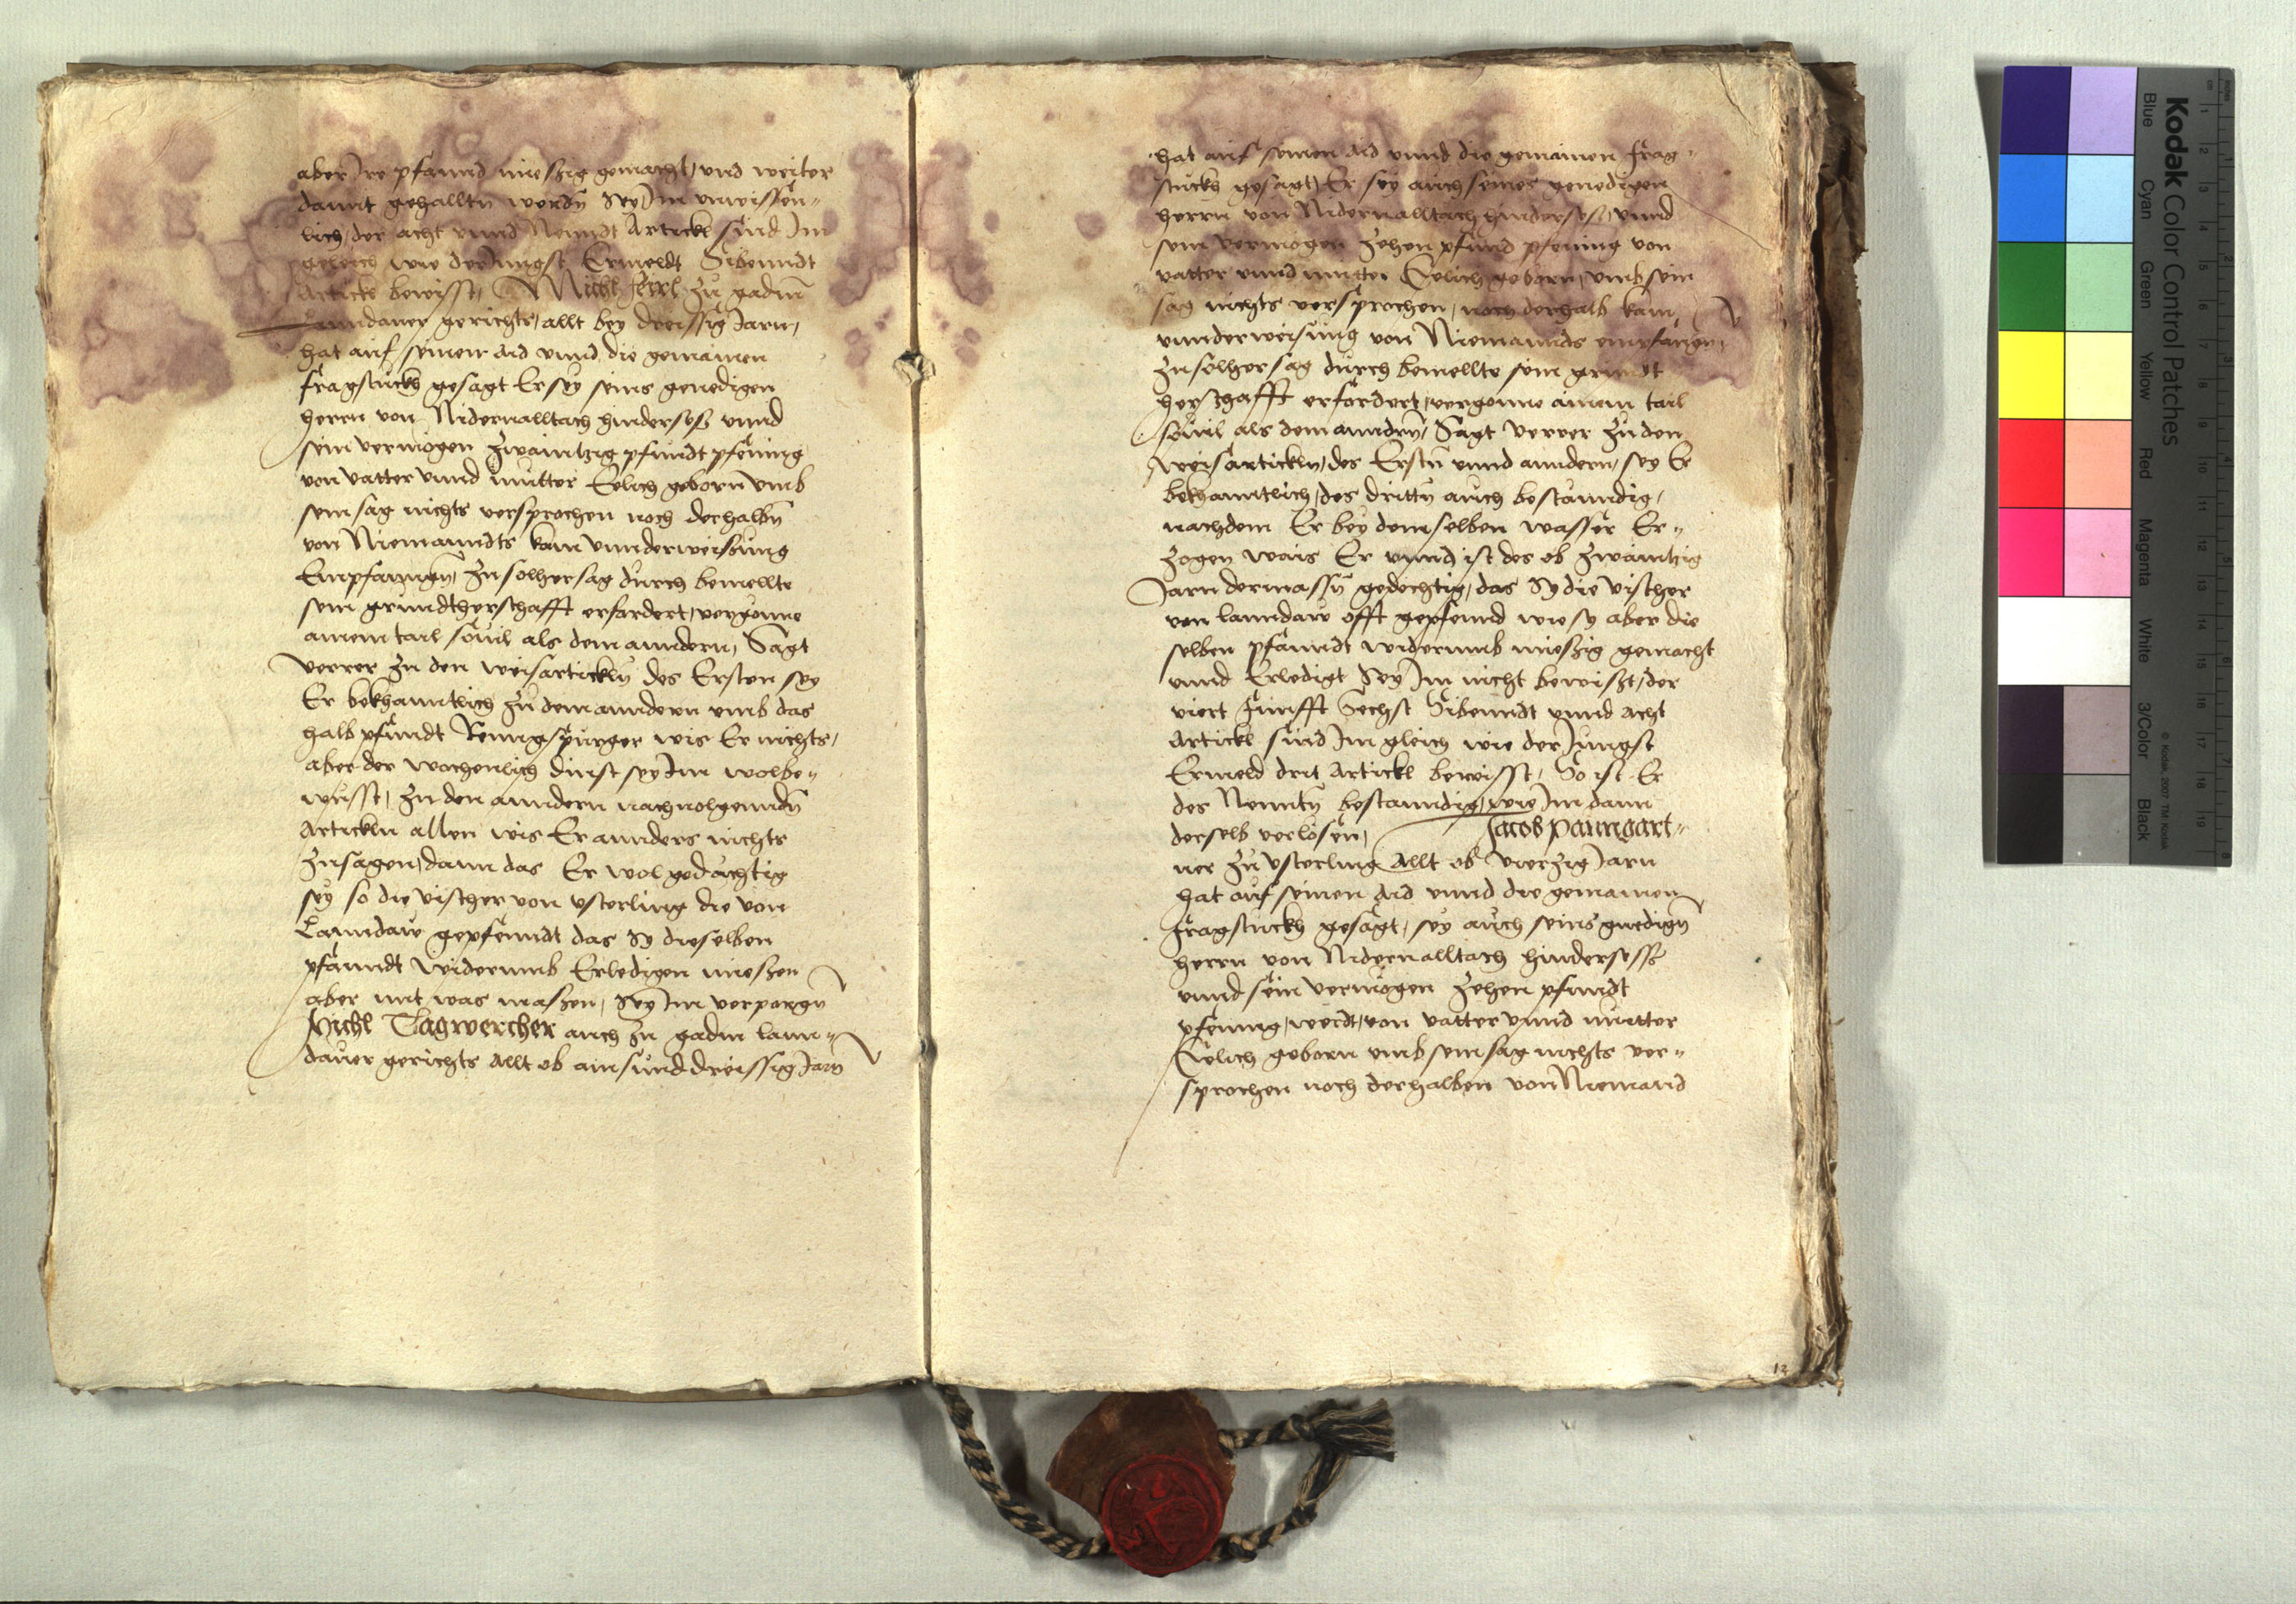 aber Ire pfannd miessig gemacht, vnd weiter
damit gehalltn werdn sey Im vnwissen„
lich, der acht vnnd Nenndt Artickl sind Im
geleich wie der Jungst Ermeldt Sibenndt
Artickl bewisst, Michl zu gadm
Lanndauer gerichts, allt bey dreissig Jarn,
hat auf seinen aid vnnd die gemainen
fragstuckh gesagt Er sey seins genedigen
herrn von Nidernalltach hindersess vnnd
sein vermogen Zwaintzig pfundt pfening
von vatter vnnd mutter Eelich geborn vmb
sein sag nichts versprochen noch derhalbn
von Niemanndts kain vnnderweisung
Empfanngn, Zu solher sag durch bemellte
sein grundtherschafft erfordert, vergonne
ainem tail souil als dem anndern, Sagt
verrer zu den weisartickln des Ersten sey
Er bekhanntlich zu dem anndern vmb das
halb pfundt Renngspurger wis Er nichts,
aber der wochenlich dinst sey Im wolbe„
wusst, zu den anndern nachuolgenndn
Artickln allen wis Er annders nichts
zusagen, dann das Er wol gedachtig
sey so die vischer von vsterling die von
Lanndaw gepfenndt das Sy dieselben
pfanndt widerumb Erledigen muessen
aber mit was massen, Sey Im verporgn
Michl Tagwercher auch zu gadm lann„
dauer gerichts Allt ob ainsunddreissig Jarn
hat auf seinen aid vnnd die gemainen frag„
stuckh gesagt, Er sey auch seines genedigen
herrn von Nidernalltach hindersess, vnnd
sein vermogen zehen pfund pfening von
vatter vnnd mutter Eelich geborn, vmb sein
sag nichts versprochen, noch derhalb kain
vnnderweisung von Niemannds empfangen,
zu solher sag durch bemellte sein grundt
herschafft erfordert, vergonne ainem tail
souil als dem anndern, Sagt verrer zu den
weisartickln, des Erstn vnnd anndern, sey Er
bekhanntlich, des drittn auch bestanndig,
nachdem Er bey demselben wasser Er„
zogen wais Er vnnd ist des ob zwaintzig
Jarn dermassn gedechtig, das Sy die vischer
von lanndaw offt gepfennd wie sy aber die
selben pfanndt widerumb miessig gemacht
vnnd Erledigt Sey Im nicht bewisst, der
viert Funfft Sechst Sibenndt vnnd Acht
Artickl sind Im gleich wie der Jungst
Ermeld drit Artickl bewisst, So ist Er
des Nenntn bestanndig, wie Im dann
derselb verlesen, Jacob paumgart„
ner zu vsterling Allt ob vierzig Jarn
hat auf seinen Aid vnnd die gemainen
Fragstuckh gesagt, sey auch seins gnedign
herrn von Nidernalltach hindersess
vnnd sein vermogen zehen pfundt
pfening, werdt, von vatter vnnd mutter
Eelich geborn vmb sein sag nichts ver„
sprochen noch derhalben von Niemand
12
Kodak Color Control Patches
Blue Cyan Green Yellow Red Magenta White 3/Color Black
© Kodak, 2007 TM: Kodak